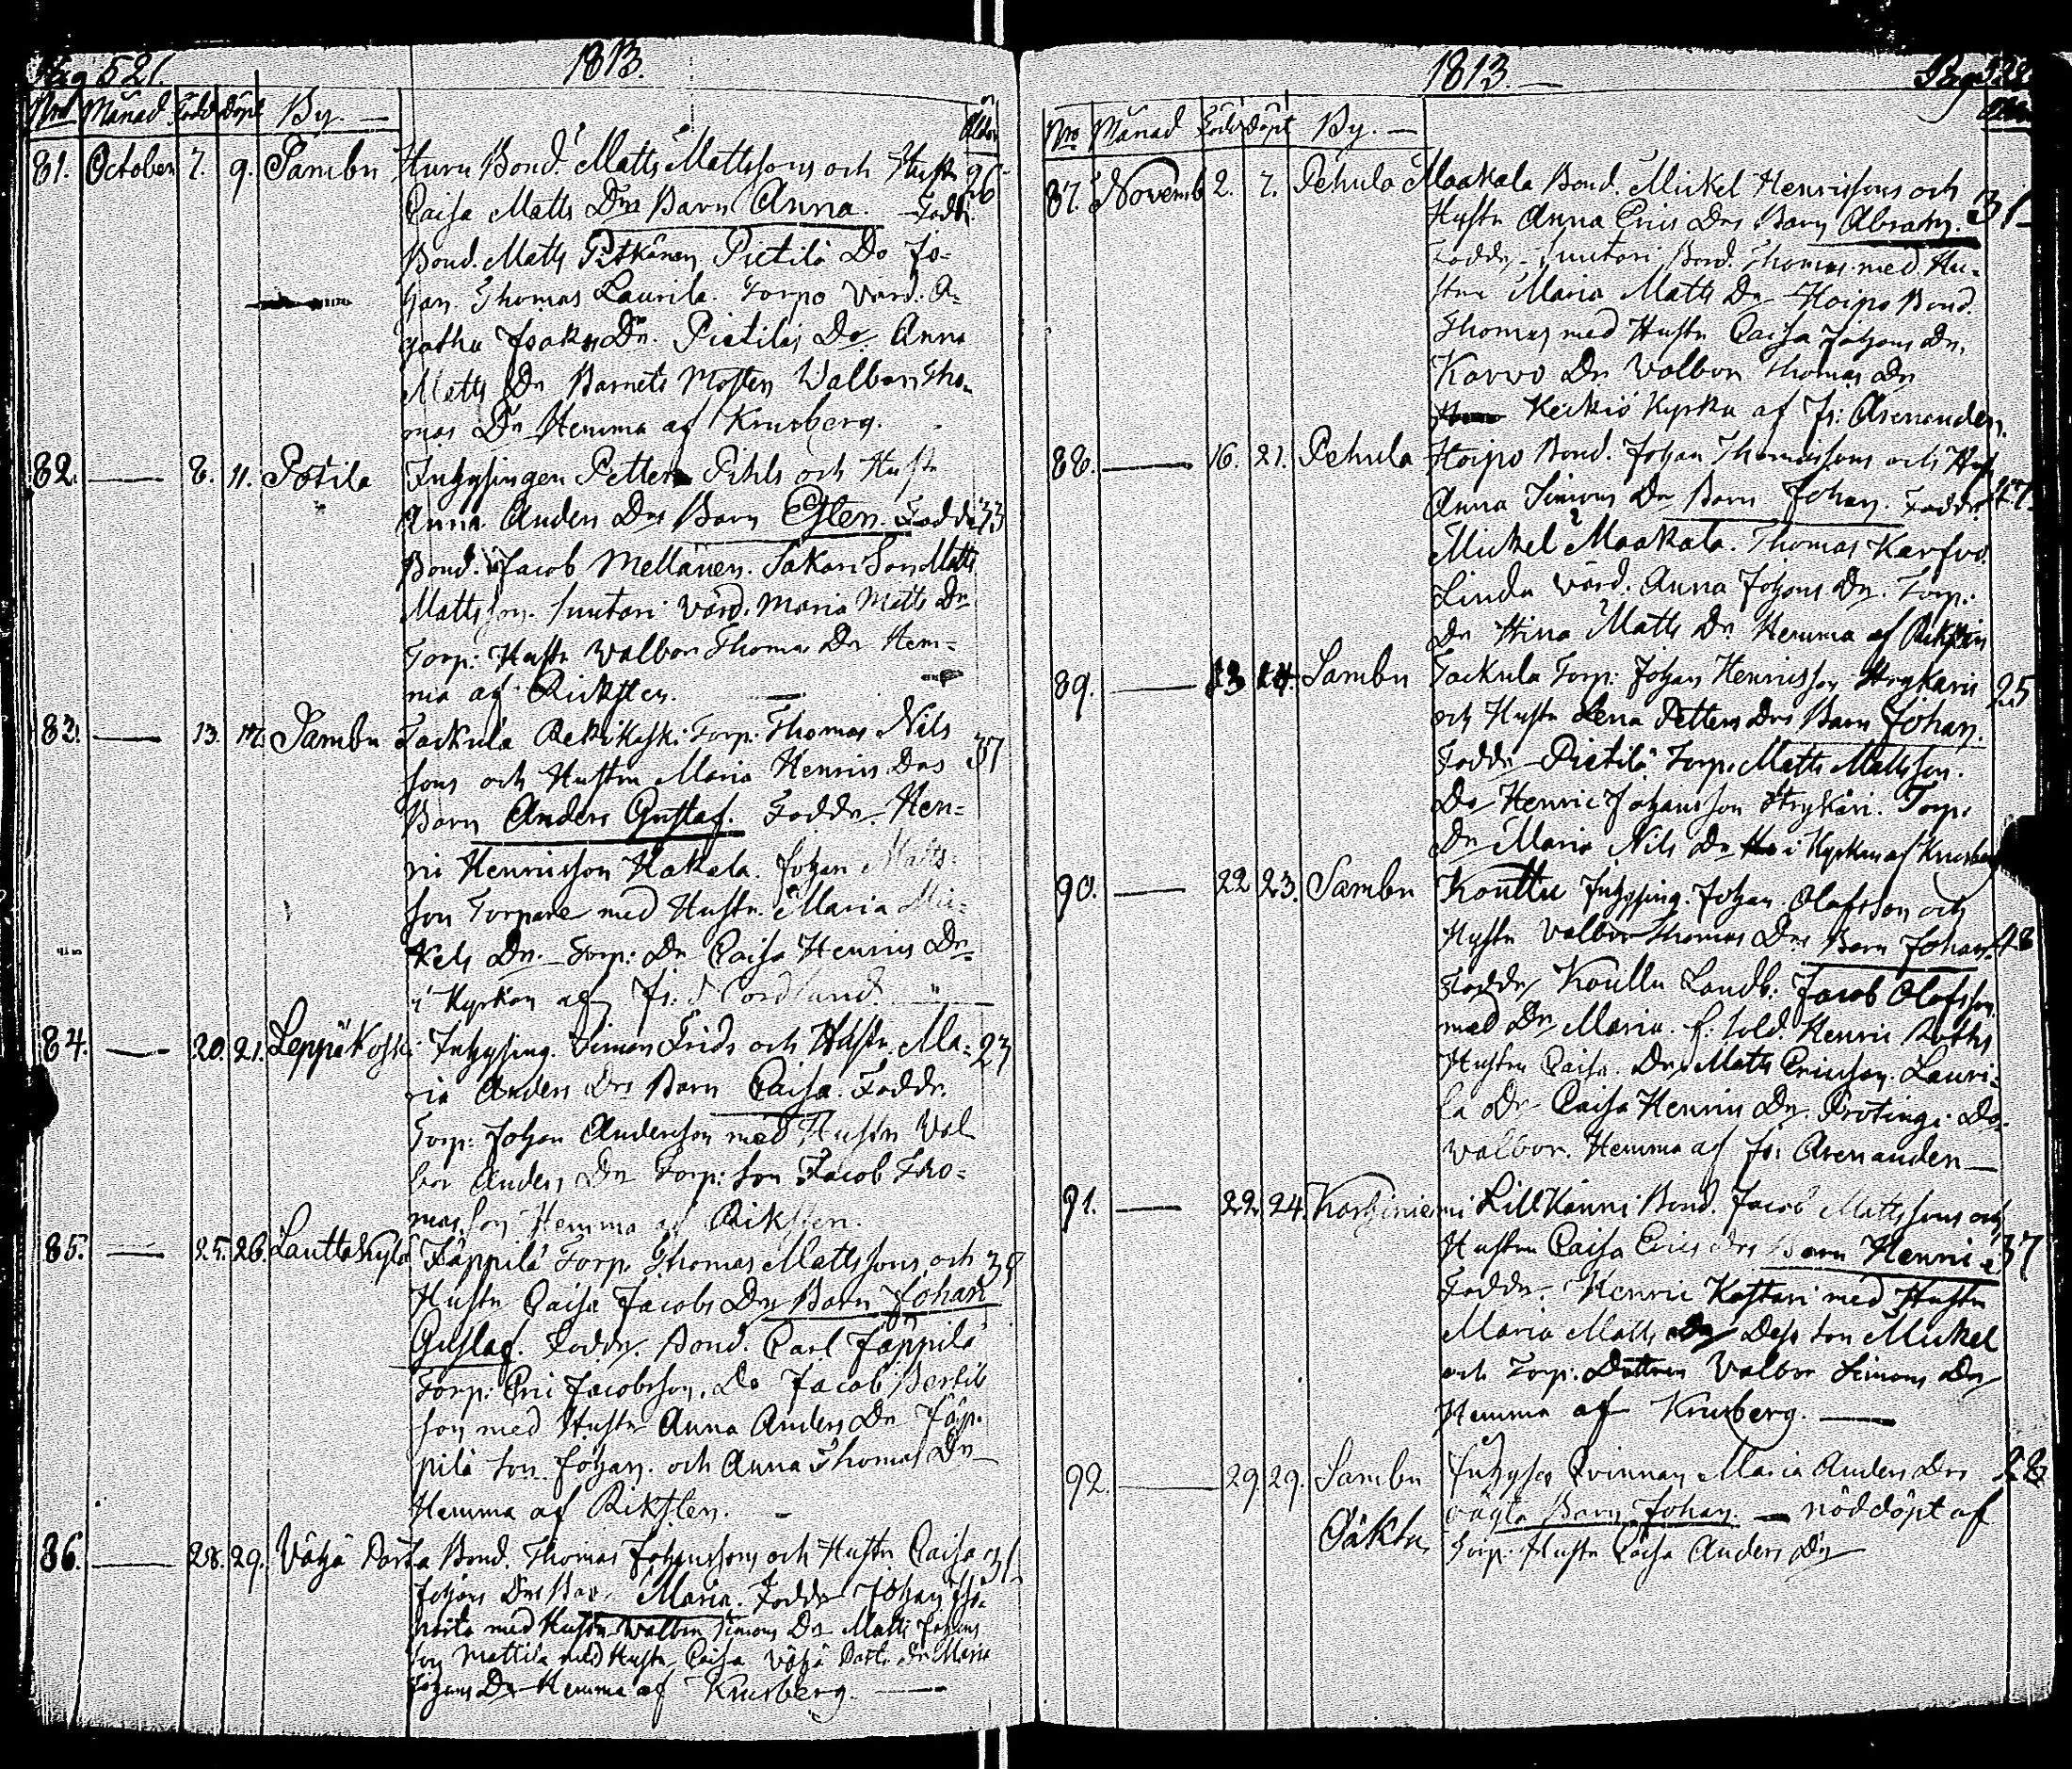 Pag 521.
1813.
Nro Månad Född Döpt By. — Ålder
81. October 7. 9. Sambu Huru Bond. Matts Mattssons och Hustr 26
Caisa Matts Drs Barn Anna. Faddr.
Bond. Matts Pitkänen Pietilä Do Jo-
han Thomas Laurila. Torpo Värd. A-
gatha Isaks Dr. Pietiläs Dr Anna
Matts Dr Barnets Moster Walbor Tho-
mas Dr Hemma af Krusberg.
82. — 8. 11. Potila Inhysingen Petter Pihls och Hustr
Anna Anders Drs Barn Esten. Faddr. 33
Bond. Jacob Mellänen. Sakari Son Matts
Mattsson. Suutari Värd. Maria Matts Dr
Torp: Hustr Walbor Thomas Dr Hem-
ma af Ricksten.
83. — 13. 17. Sambu Tackula Torp: Thomas Nils
sons och Hustru Maria Henrics Drs 37
Barn Anders Gustaf. Faddr. Hen-
ric Henricsson Hakala. Johan Matts-
son Torpare med Hustr. Maria Mic-
kels Dr. Torp: Dr Caisa Henrics Dr
i Kyrkan af
84. — 20. 21. Leppäkoski Inhysing. Simon Frids och Hustr. Ma- 23
ria Anders Drs Barn Caisa. Faddr.
Torp: Johan Andersson med Hustru Wal
bor Anders Dr Torp: Son Jacob Tho-
masson Hemma af Riksten.
85. — 25. 26. Lauttakylä Jäppilä Torp. Thomas Mattssons och 38
Hustr Caisa Jacobs Drs Barn Johan
Gustaf. Faddr. Bond. Carl Jäppilä
Torp: Eric Jacobsson. Do Jacob Bertils
son med Hustr Anna Anders Dr Jäp-
pilä Son Johan. och Anna Thomas Dr
Hemma af Riksten.
86. — 28. 29. Vähä Pasta Bond. Thomas Johanssons och Hustr Caisa 31
Johans Drs Barn Maria. Faddr Johan
med Hustr Walbor Simons Dr Matts Johans
son Mattila med Hustr Caisa Vähä Dr Maria
Johans Dr Hemma af Krusberg.
1813. —
Pag 522
Nro Månad Född Döpt By. —
87. Novemb 2. 7. Pehula Maakala Bond. Mickel Henricssons och
Hustr Anna Erics Drs Barn Abraham. 31
Faddr. Suutari Bond. Thomas med Hu-
stru Maria Matts Dr Hoipo Bond.
Thomas med Hustr Caisa Johans Dr.
Karvo Dr Walbor Thomas Dr
Keikiö Kyrka af Js: Arenander.
88. — 16. 21. Pehula Hoipo Bond. Johan Thomassons och Hustr
Anna Simons Dr Barn Johan. Faddr.
Mickel Maakala. Thomas Karfvo.
Linda Värd. Anna Johans Dr. Torp:
Dr Stina Matts Dr Hemma af Riksten
89. — 23 24. Sambu Tackula Torp: Johan Henricsson Strykaris 25
och Hustr Lena Petters Drs Barn Johan.
Faddr. Pietilä Torp. Matts Mattsson.
Do Henric Johansson Strykari. Torp:
Dr Maria Nils Dr i Kyrkan af Krusberg
90. — 22 23. Sambu Kouttu Inhysing. Johan Olofsson och
Hustr Walbor Thomas Drs Barn Johan. 48
Faddr. Kouttu Landb: Jacob Olofsson
med Dr Maria. f: Sold. Henric
Hustru Caisa. Dr Matts Ericsson. Lauri-
la Dr Caisa Henrics Dr. Do
Walbor. Hemma af Js: Arenander —
91. — 22. 24. Karhiniemi Lill Känni Bond. Jacob Mattssons och
Hustru Caisa Erics Drs Barn Henric 37
Faddr. Henric Kostari med Hustru
Maria Matts Dr Dess Son Mickel
och Torp: Dottren Walbor Simons Dr
Hemma af Krusberg. —
92. — 29. 29. Sambu Inhyses Qvinnan Maria Anders Drs 22
Oäkta oägta Barn Johan. — nöddöpt af
Torp: Hustr Caisa Anders Dr